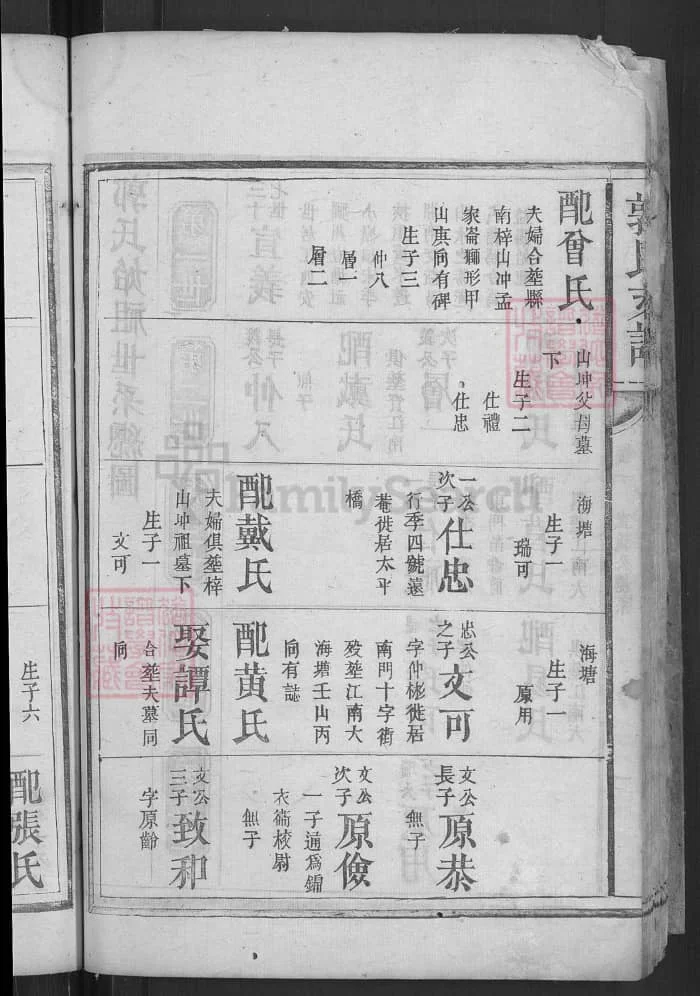 郭氏支譜
配曾氏
夫婦合塟縣
南梓山冲孟
家崙獅形甲
山庚向有碑
生子三
仲八
層一
層二
山坤父母墓
下
生子二
仕禮
仕忠
海塘
生子一
瑞可
一公
次子
仕忠
行季四號遠
菴徙居太平
橋
配戴氏
夫婦俱塟梓
山坤祖墓下
生子一
文可
海塘
生子一
原用
忠公
之子
文可
字仲彬徙居
南門十字街
歿塟江南大
海塘壬山丙
向有誌
配黃氏
娶譚氏
合塟夫墓同
向
文公
長子
原恭
無子
文公
次子
原儉
一子通爲錦
衣衞校尉
無子
文公
三子
致和
字原齡
生子六
配張氏
FamilySearch